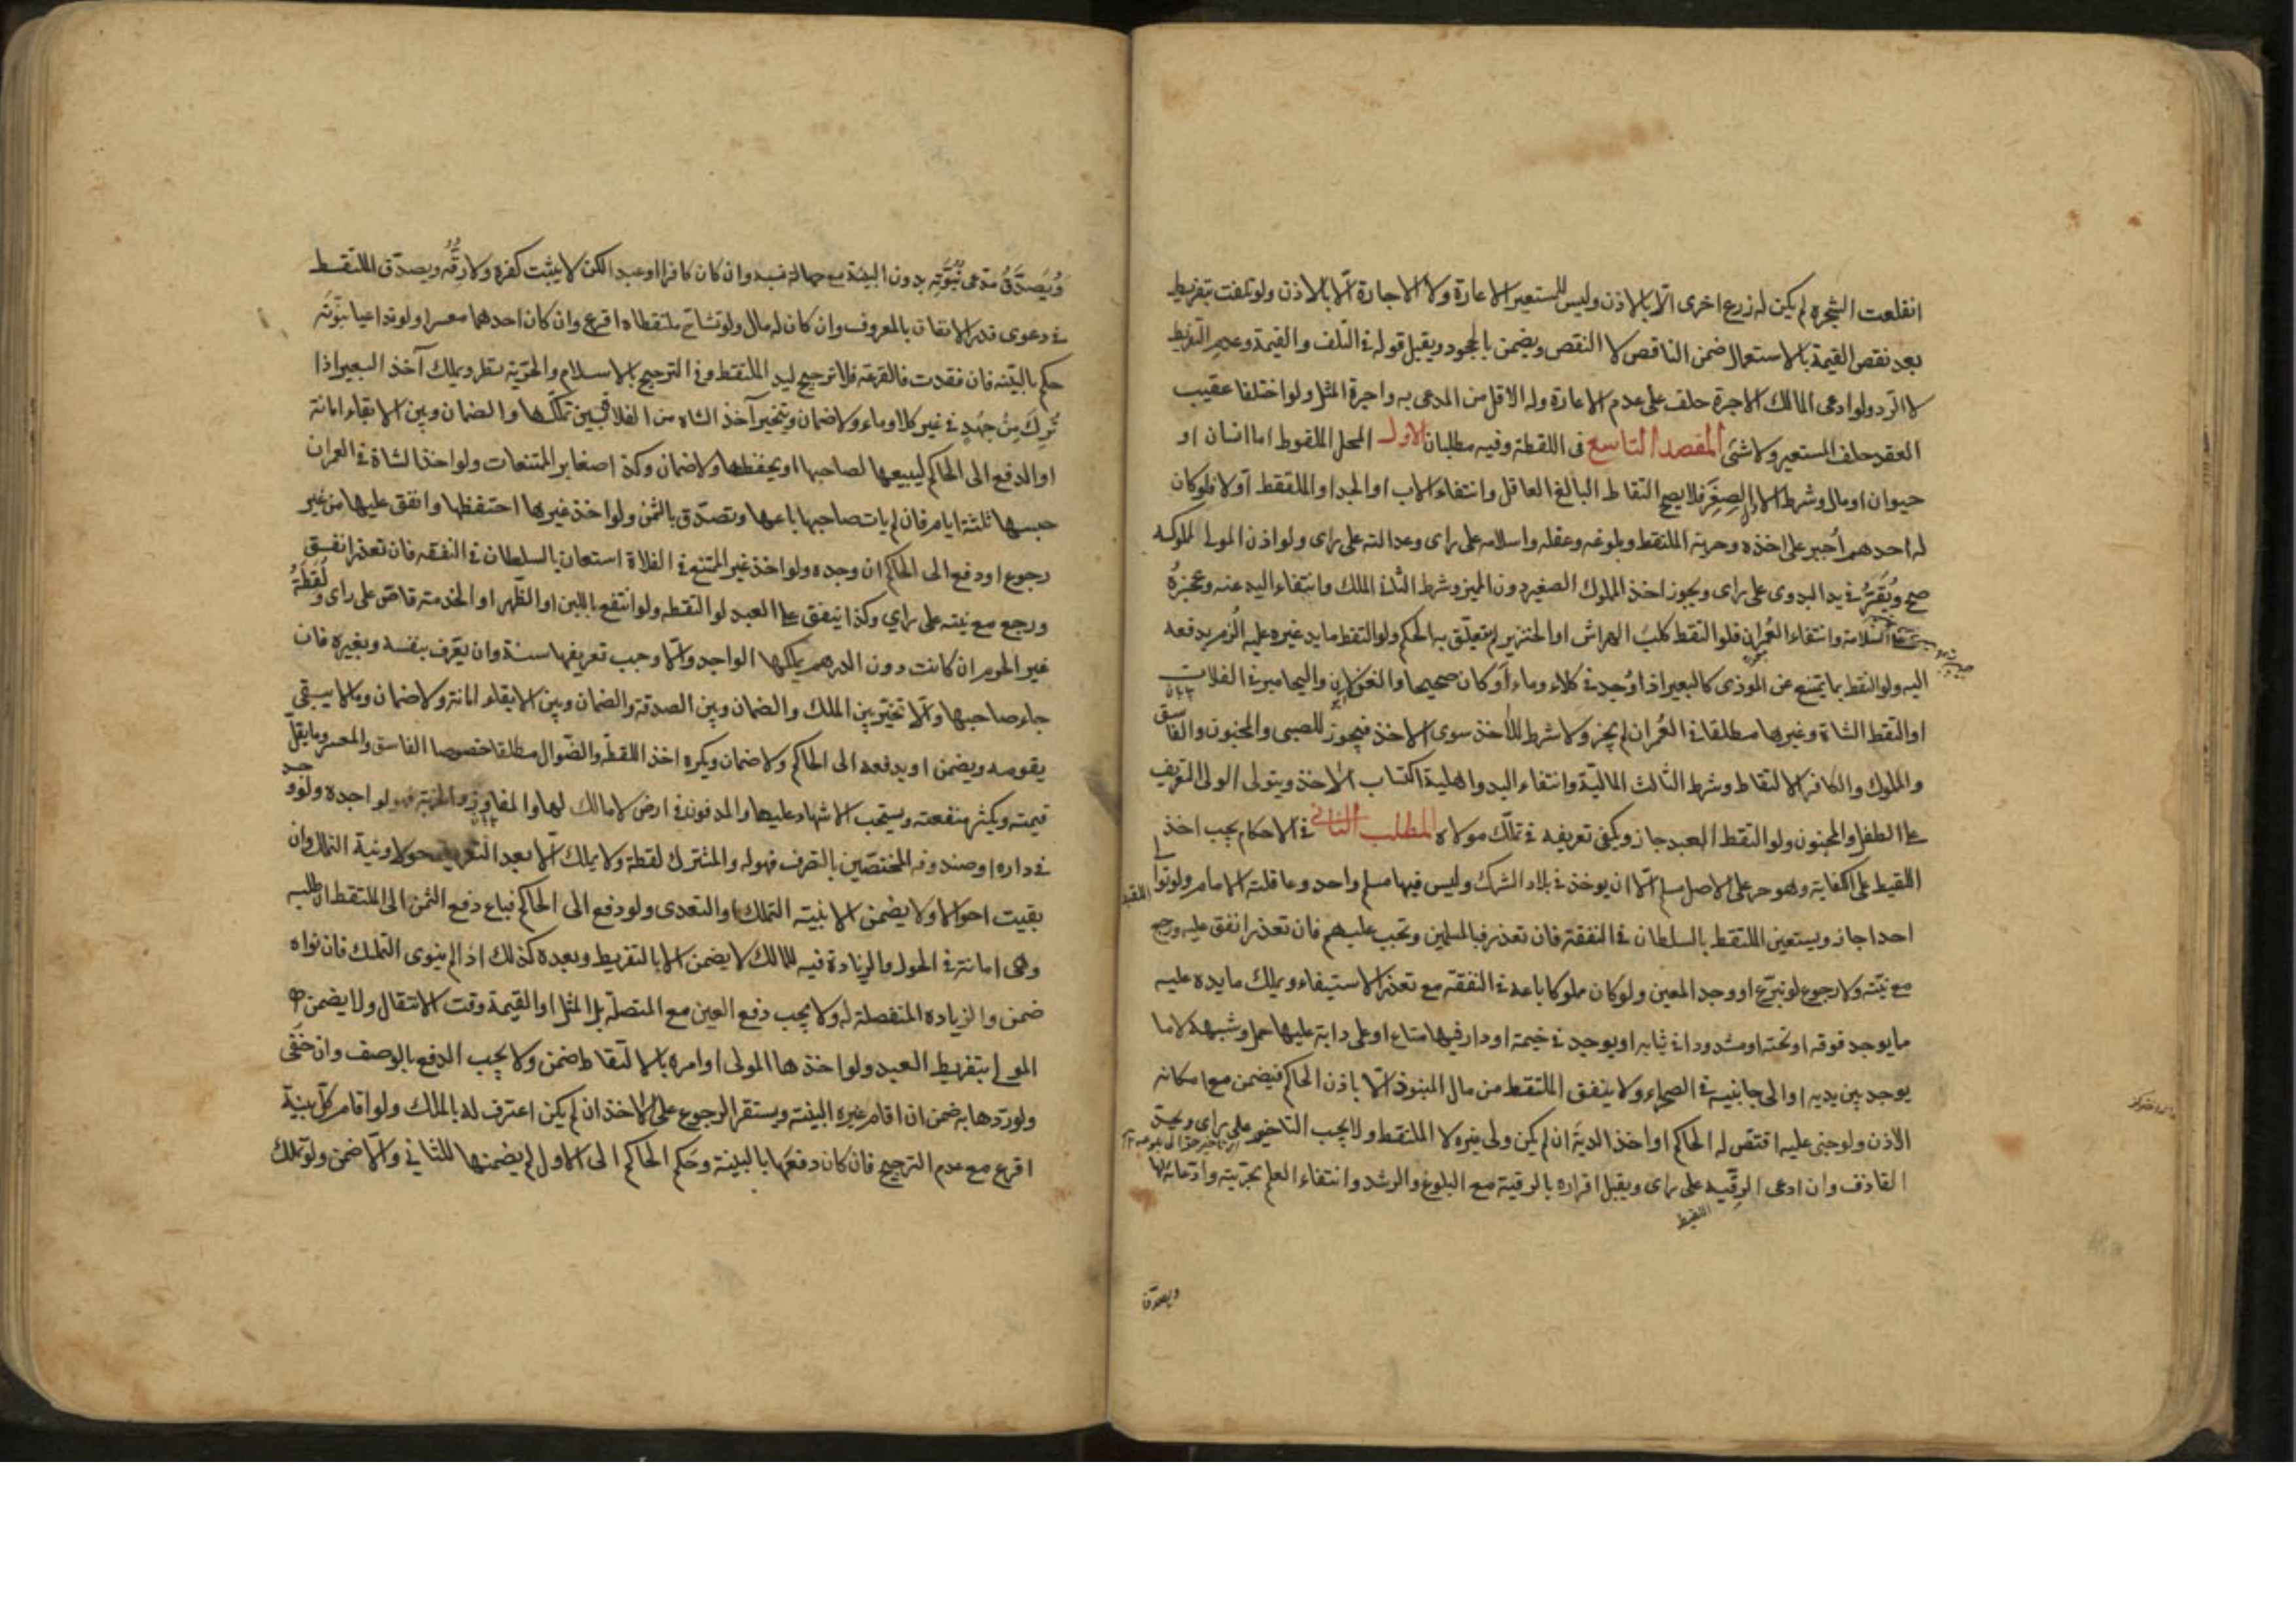 انقلعت الشجرة لم يكن له زرع اخرى الّا بالاذن وليس للمستعير الاعارة ولا الاجارة الّا بالاذن ولو تلفت بتفريط
بعد نقص القيمة بالاستعمال ضمن الناقص لا النقص ويضمن بالجحود ويقبل قوله في التلف والقيمة وعدم التفريط
لا الرد ولو ادعى المالك الاجرة حلف على عدم الاعارة وله الاقل من المدعى به واجرة المثل ولو اختلفا عقيب
العقد حلف المستعير ولا شئ المقصد التاسع فى اللقطة وفيه مطلبان الاول المحل الملقوط اما انسان او
حيوان او مال وشرط الاول الصغر فلا يصح التقاط البالغ العاقل وانتفاء الاب او الجد او الملتقط اولا فلو كان
له احدهم اُجبر على اخذه وحرية الملتقط وبلوغه وعقله واسلامه على راى وعدالته على راى ولو اذن المولى لمملوكه
صح ويُقَرّ في يد البدوى على راى ويجوز اخذ المملوك الصغير دون المميز وشرط الثاني الملك وانتفاء اليد عنه وعجزهُ
السلامة وانتفاء العُمران فلو التقط كلب الهراش او الخنزير لم يتعلّق به الحكم ولو التقط ما يد غيره عليه اُلزم بدفعه
اليه ولو التقط بما يمتنع عن الموذى كالبعير اذا وُجد في كلاء وماء أو كان صحيحا والغزلان واليحامير في الفلات
او التقط الشاة وغيرها مطلقا في العُمران لم يجز ولا شرط للآخذ سوى الاخذ فيجوز للصبى والمجنون والفاسق
والمملوك والكافر الالتقاط وشرط الثالث الماليّة وانتفاء اليد واهلية اكتساب الآخذ ويتولى الولى التعريف
على الطفل والمجنون ولو التقط العبد جاز ويكفى تعريفه في تملّك مولاه المطلب الثاني في الاحكام يجب اخذ
اللقيط على الكفاية وهو حر على الاصل مسلم الّا ان يوخذ في بلاد الشرك وليس فيها مسلم واحد وعاقلته الامام ولو توالى اللقيط
احدا جاز ويستعين الملتقط بالسلطان في النفقة فان تعذر فبالمسلمين وتجب عليهم فان تعذر انفق عليه ورجع
مع نيّته ولا رجوع لو تبرّع او وجد المعين ولو كان مملوكا باعه في النفقة مع تعذر الاستيفاء ويملك ما يده عليه
ما يوجد فوقه او تحته او مشدودا في ثيابه او يوجد في خيمة او دار فيها متاع او على دابة عليها حمل وشبهه لا ما
يوجد بين يديه او الى جانبيه في الصحراء ولا ينفق الملتقط من مال المنبوذ الّا باذن الحاكم فيضمن مع امكانه
الاذن ولو جنى عليه اقتص له الحاكم او اخذ الدية ان لم يكن ولى غيره لا الملتقط ولا يجب التاخير على راى ويحد
القاذف وان ادعى الرقيّة على راى ويقبل اقراره بالرقية مع البلوغ والرشد وانتفاء العلم بحريته وادعائه لها
اللقيط
ويصدّق
وُيصدَّقُ مدّعى بُنُوّته بدون البينة مع جهالة نسبه وان كان كافرا او عبدا لكن لا يثبت كفره ولا رِقُّه ويصدّق الملتقط
في دعوى قدر الانفاق بالمعروف وان كان له مال ولو تشاحّ ملتقطاه اقرع وان كان احدهما معسرا ولو تداعيا بنوّته
حكم بالبيّنة فان فقدت فالقرعة فلا ترجيح ليد الملتقط وفي الترجيح بالاسلام والحرّية نظر ويملك آخذ البعير اذا
تُرِكَ مِنْ جُهْدٍ في غير كلاء وماء ولا ضمان ويتخير آخذ الشاة من الفلاة بين تملّكها والضمان وبين الابقاء امانة
او الدفع الى الحاكم ليبيعها لصاحبها او يحفظها ولا ضمان وكذا صغاير الممتنعات ولو اخذ الشاة في العمران
حبسها ثلثة ايام فان لم يات صاحبها باعها وتصدّق بالثمن ولو اخذ غيرها احتفظها وانفق عليها من غير
رجوع او دفع الى الحاكم ان وجده ولو اخذ غير الممتنع في الفلاة استعان بالسلطان في النفقة فان تعذر انفق
ورجع مع نيته على راي وكذا ينفق على العبد لو التقطه ولو انتفع باللبن او الظّهر او الخدمة قاصّ على راى ولُقَطةُ
غير الحرم ان كانت دون الدرهم يملكها الواجد والّا وجب تعريفها سنة وان يعرّف بنفسه وبغيره فان
جاء صاحبها والّا تخيّر بين الملك والضمان وبين الصدقة والضمان وبين الابقاء امانة ولا ضمان وما لا يبقى
يقومه ويضمن او يدفعه الى الحاكم ولا ضمان ويكره اخذ اللقطة والضّوال مطلقا خصوصا الفاسق والمعسر وما يقلّ
قيمته ويكثر منفعته ويستحب الاشهاد عليها والمدفون في ارض لا مالك لها والمفاوز والخربة فهو لواجده ولو وجد
في داره او صندوقه المختصّين بالتصرف فهو له والمشترك لقطة ولا يملك الّا بعد التعريف حولا ونية التملك وان
بقيت احوالا ولا يضمن الا بنية التملك او التعدى ولو دفع الى الحاكم فباع دفع الثمن الى الملتقط ان طلبه
وهى امانة في الحول والزيادة فيه للمالك لا يضمن الا بالتفريط وبعده كذلك اذا لم ينوى التملك فان نواه
ضمن والزيادة المنفصلة له ولا يجب دفع العين مع المتصلة بل المثل او القيمة وقت الانتقال ولا يضمن
المولى بتفريط العبد ولو اخذها المولى او امره بالالتقاط ضمن ولا يجب الدفع بالوصف وان خَفى
ولو ردها به ضمن ان اقام غيره البينة ويستقر الرجوع على الآخذ ان لم يكن اعترف له بالملك ولو اقام كلّ بينة
اقرع مع عدم الترجيح فان كان دفعها بالبينة وحكم الحاكم الى الاول لم يضمنها للثاني والّا ضمن ولو تملك